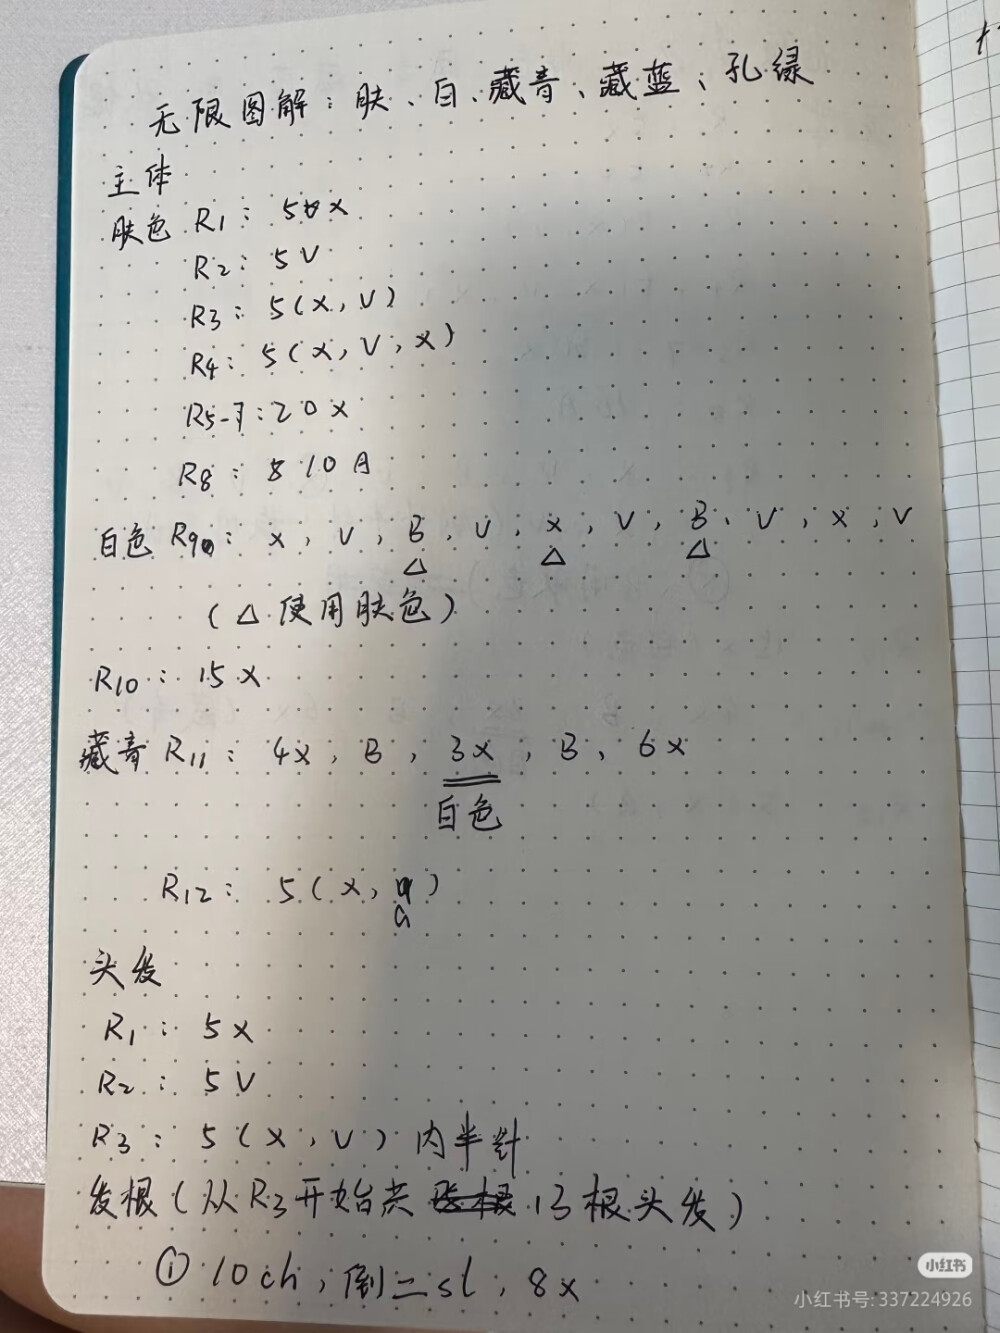 无限图解：肤、白、藏青、藏蓝、孔绿
主体
肤色 R1：5x
R2：5V
R3：5(x,V)
R4：5(x,V,x)
R5-7：20x
R8：10A
白色 R9：x,V,B,V,x,V,B,V,x,V
△ △ △
(△使用肤色)
R10：15x
藏青 R11：4x,B,3x,B,6x
白色
R12：5(x,A)
头发
R1：5x
R2：5V
R3：5(x,V)内半针
发根(从R3开始共 13根头发)
① 10ch,倒二sl,8x
小红书
小红书号:337224926